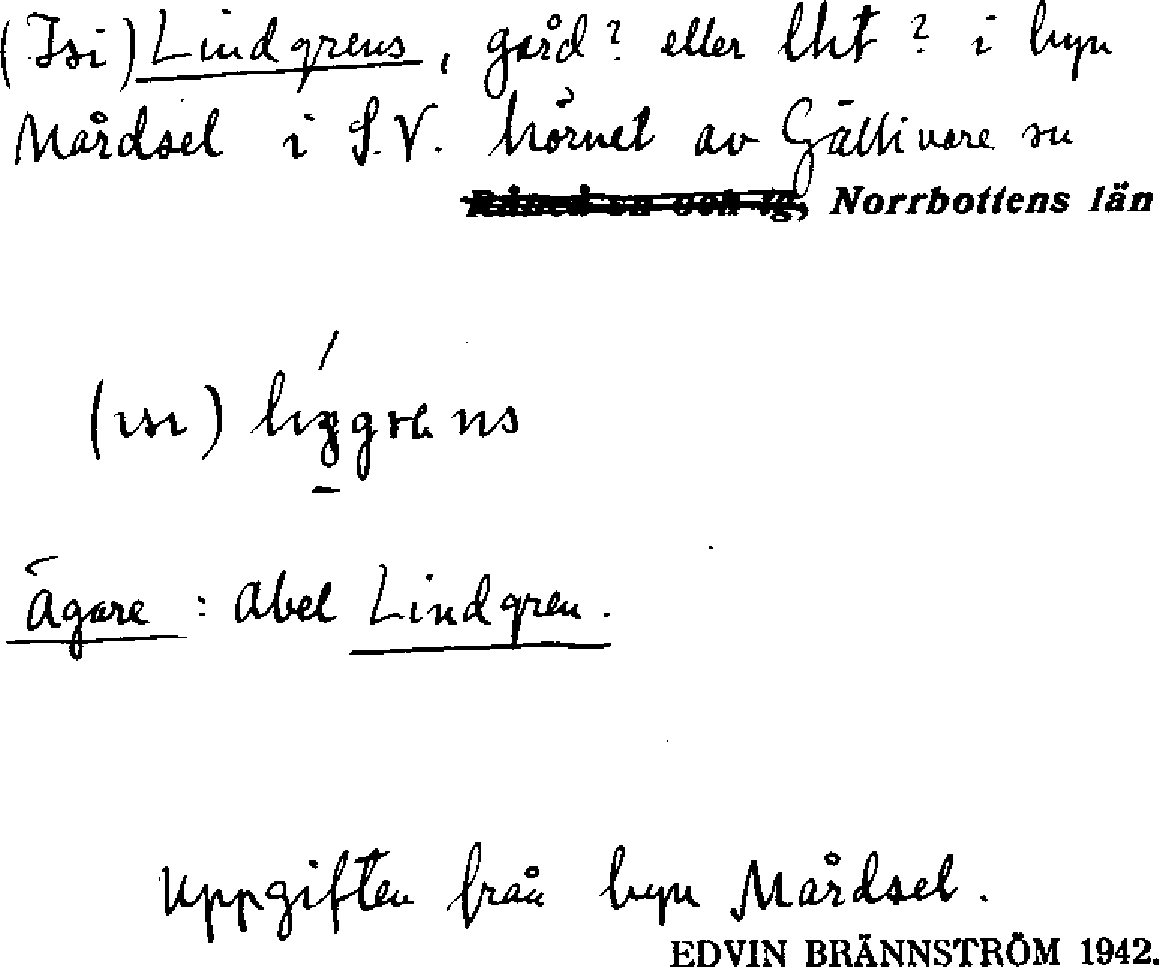 (Isi) Lindgrens, gård? eller lht? i byn
Mårdsel i S.V. hörnet av Gällivare sn
Råneå sn och tg, Norrbottens län
(ısı)
Ägare : Abel Lindgren.
Uppgiften från byn Mårdsel.
EDVIN BRÄNNSTRÖM 1942.